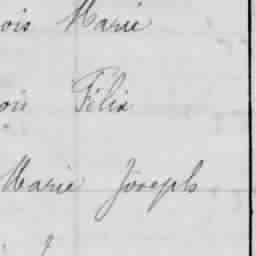 ois Marie
ois Félix
Marie Joseph